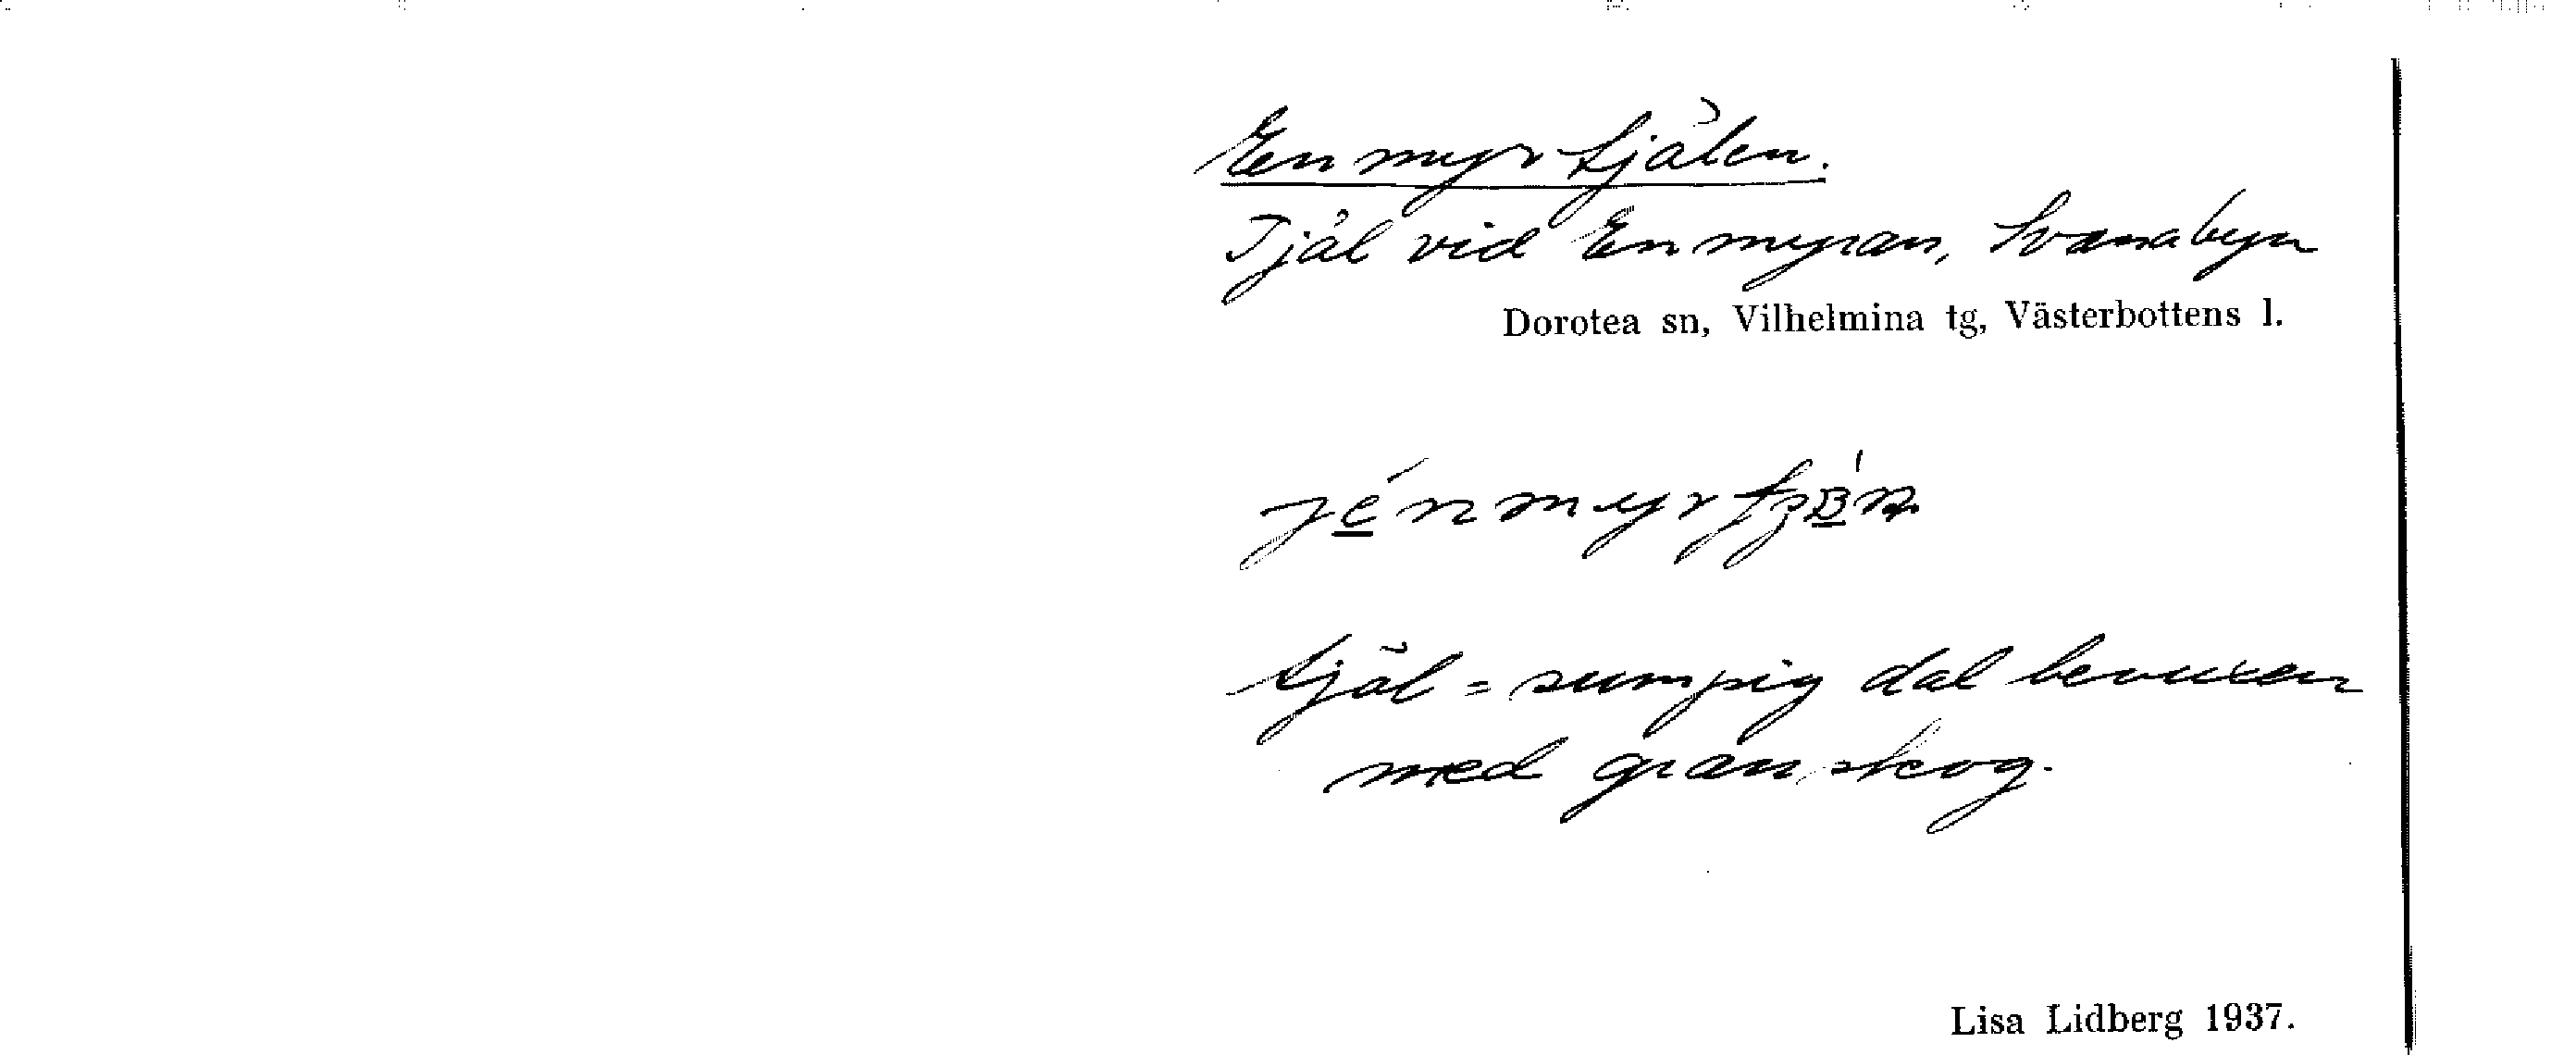 Enmyrtjålen.
Tjål vid Enmyran, Svanabyn
Dorotea sn, Vilhelmina tg, Västerbottens l.
tjål = sumpig dal bevuxen
med granskog.
Lisa Lidberg 1937.